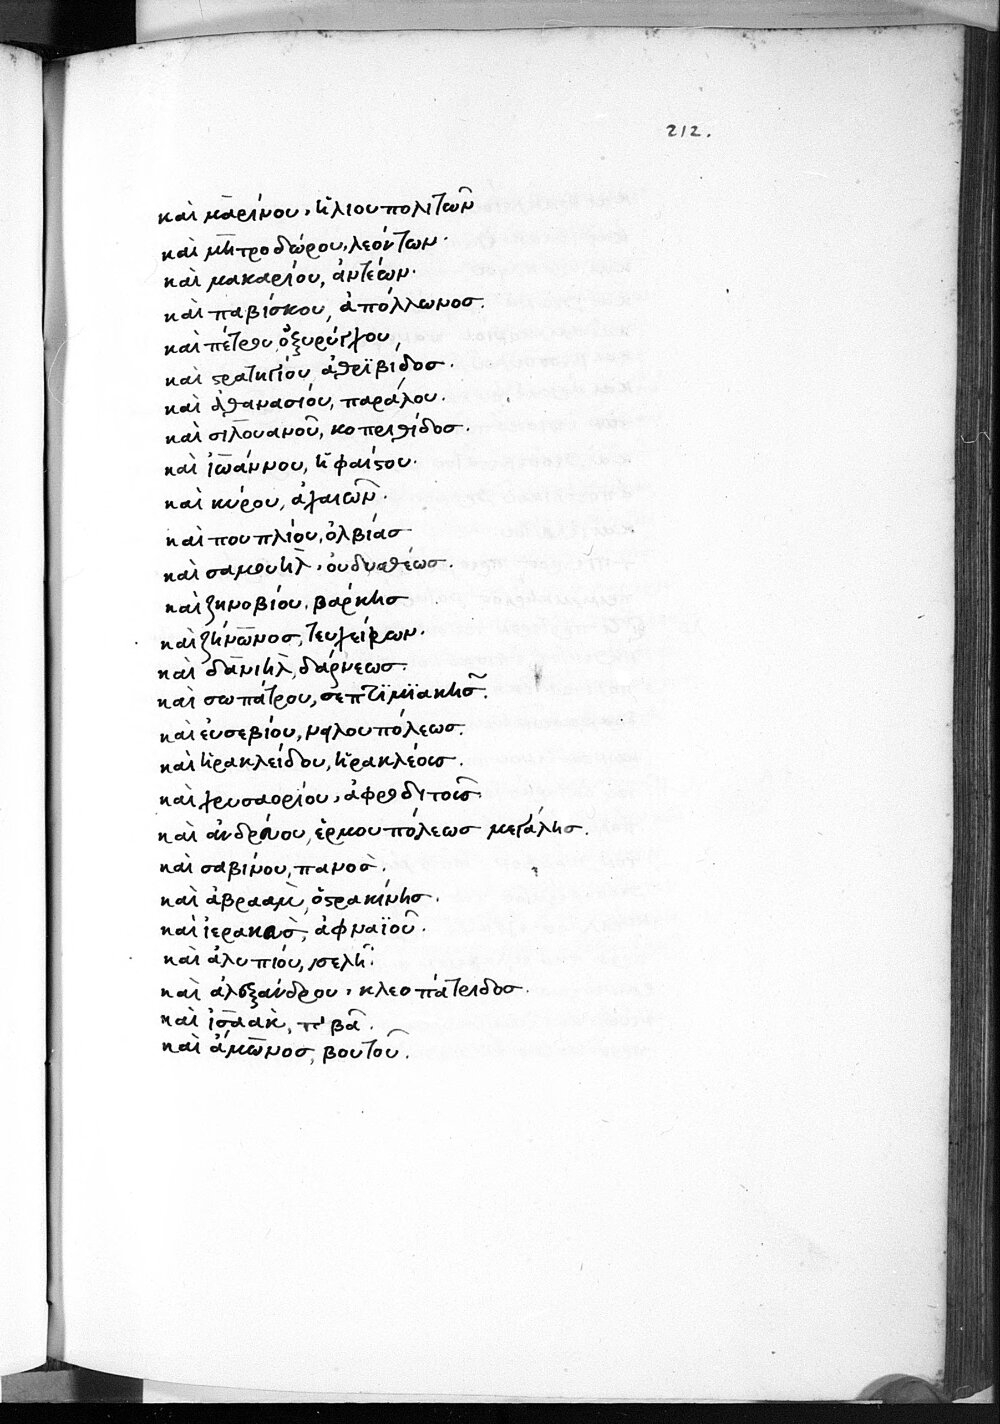 212.
καὶ μαρίνου, ἡλιουπολιτῶν
καὶ μητροδώρου, λεόντων.
καὶ μακαρίου, ἀντέων.
καὶ παβίσκου, ἀπόλλωνοσ.
καὶ πέτρου, ὀξυρύγχου,
καὶ στρατηγίου, ἀθρϊβιδοσ.
καὶ ἀθανασίου, παράλου.
καὶ σιλουανοῦ, κοπριθίδοσ.
καὶ ἰωάννου, ἡφαίστου.
καὶ κύρου, ἀχαιῶν.
καὶ πουπλίου, ὀλβίασ
καὶ σαμουὴλ, ὀυδυαθέωσ.
καὶ ζηνοβίου, βαρκησ
καὶ ζήνωνοσ, τευχείρων.
καὶ δανιὴλ, δάρνεωσ.
καὶ σωπάτρου, σεπτϊμϊακησ.
καὶ ἐυσεβίου, νηλουπόλεωσ.
καὶ ἡρακλείδου, ἡρακλέουσ.
καὶ χρυσαορίου, ἀφροδυτοῦσ.
καὶ ἀνδρίνου, ἑρμουπόλεωσ μεγάλησ.
καὶ σαβίνου, πανοσ.
καὶ ἀβρααμ, ὀστρακίνησ.
καὶ ἱερακασ, ἀφναϊου.
καὶ ἀλυπιόυ, σελη.
καὶ ἀλεξάνδρου, κλεοπάτριδοσ.
καὶ ἰσαακ, τ' βα.
καὶ ἀμωνοσ, βουτου.